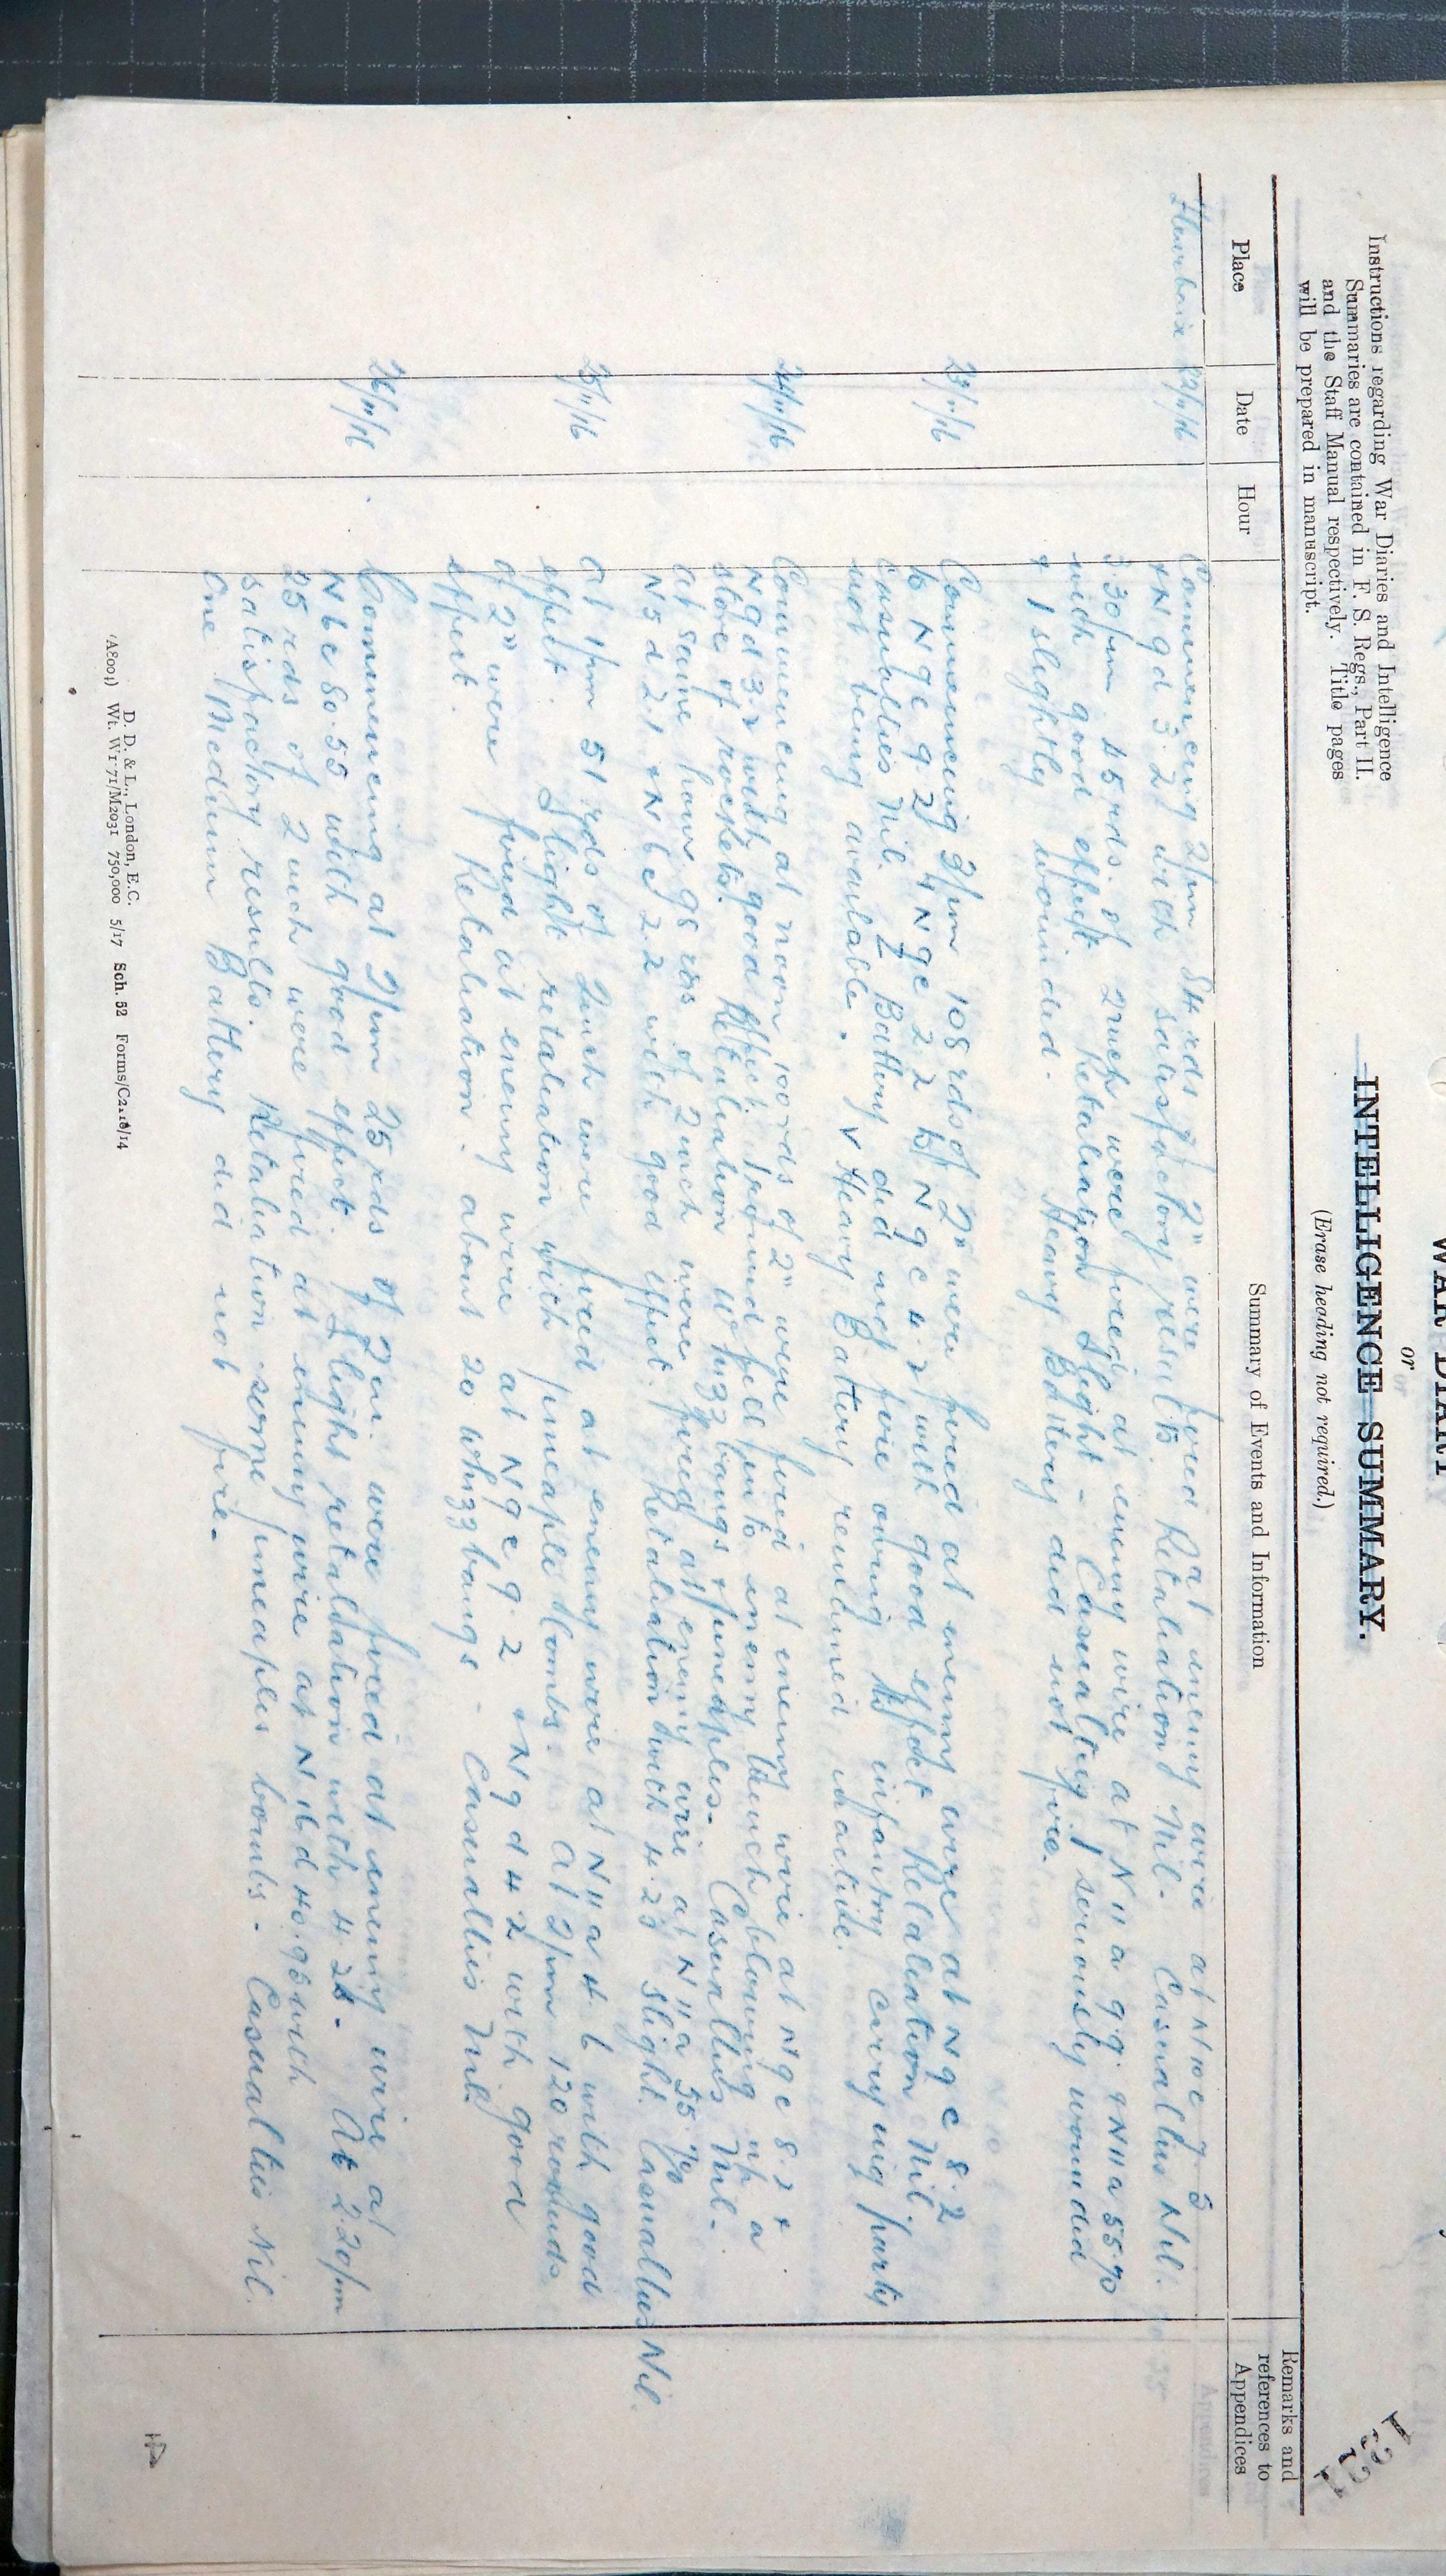 WAR DIARY
or
INTELLIGENCE SUMMARY.
(Erase heading not required.)
Instructions regarding War Diaries and Intelligence
Summaries are contained in F. S. Regs., Part II.
and the Staff Manual respectively. Title pages
will be prepared in manuscript.
Place Date Hour Summary of Events and Information Remarks and references to Appendices
22/11/16 Commencing 2pm 84 rds of 2" were fired at enemy wire at N10c 7 5
+ N9d 3.2 with satisfactory results. Retaliation Nil. Casualties Nil.
3.30pm 45 rds. of 2 inch were fired at enemy wire at N11a 9.9. + N11a 55.90
with good effect. Retaliation Slight - Casualties 1 seriously wounded
+ 1 slightly wounded. Heavy Battery did not fire.
23/11/16 Commencing 2pm 108 rds of 2" were fired at enemy wire at N9c 8.2
to N9c 9.2 + N9c 2.2 to N9c 4.2 with good effect Retaliation Nil.
Casualties Nil. Z Battery did not fire owing to infantry carrying party
not being available. V Heavy Battery remained inactive.
24/11/16 Commencing at noon 100 rds of 2" were fired at enemy wire at N9c 8.2 +
N9d 3.2 with good effect. 1 round fell into enemy trench blowing up a
store of rockets. Retaliation Whizz bangs + pineapples. Casualties Nil.
At same hour 98 rds of 2 inch were fired at enemy wire at N11a 55.90
N5d 2.1 + N6c 2.2 with good effect. Retaliation with 4.2s slight. Casualties Nil.
25/11/16 At 1pm 51 rds of 2 inch were fired at enemy wire at N11a 4.6 with good
effect. Slight retaliation with pineapple bombs. At 2pm 120 rounds
of 2" were fired at enemy wire at N9c 9.2 + N9d 4.2 with good
effect. Retaliation - about 20 whizz bangs - Casualties Nil.
26/11/16 Commencing at 2pm 25 rds of 2in. were fired at enemy wire at
N6c 80.55 with good effect. Slight retaliation with 4.2s. At 2.20pm
25 rds of 2 inch were fired at enemy wire at N6d 40.95 with
satisfactory results. Retaliation some pineapples bombs. Casualties Nil.
One Medium Battery did not fire.
D. D. & L., London, E.C.
(A8004) Wt. W1771/M2031 750,000 5/17 Sch. 52 Forms/C2118/14